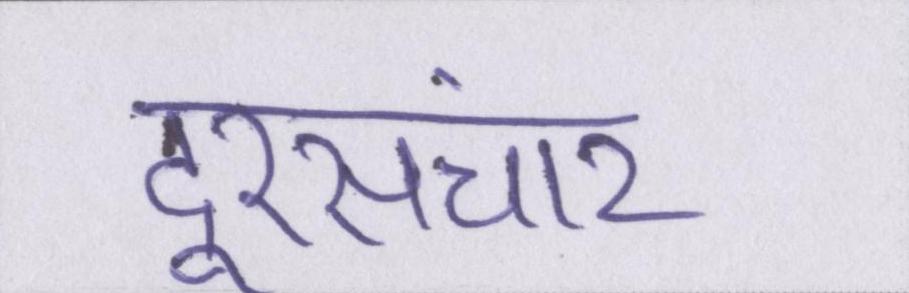 दूरसंचार